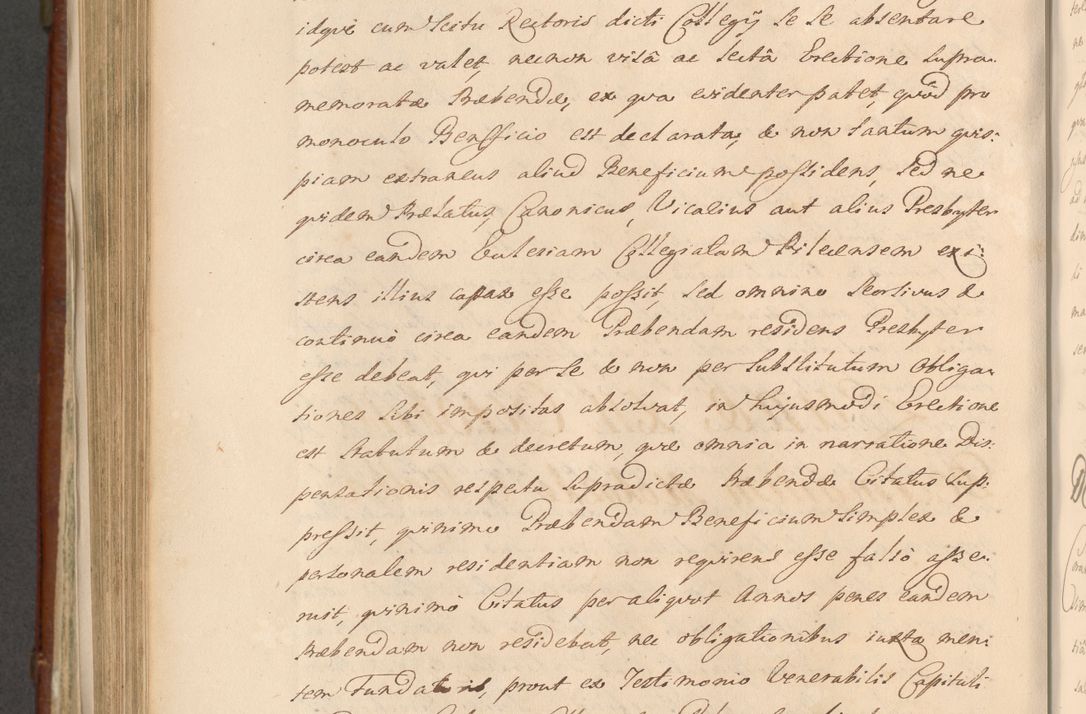 idqve cum Scitu Rectoris dicti Collegij se se absentare
potest ac valet, necnon visâ ac lectâ Erectione supra-
memoratæ Præbendæ, ex qva evidenter patet, qvòd pro
monoculo Benefficio est declarata, & non tantum qvis-
piam extraneus aliud Beneficium possidens, sed ne
qvidem Prælatus, Canonicus, Vicarius aut alius Presbyter
circa eandem Ecclesiam Collegiatam Pilecensem exi-
stens illius capax esse possit, sed omnino seorsivus &
continuò circa eandem Præbendam residens Presbyter
esse debeat, qvi per se & non per substitutum obliga-
tiones sibi impositas absolvat, in hujusmodi Erectione
est statutum & decretum, qvæ omnia in narratione Dis-
pensationis respectu supradictæ Præbendæ Citatus sup-
pressit, qvinimo Præbendam Beneficium simplex &
personalem residentiam non reqvirens esse falsò asse-
ruit, qvinimò Citatus per aliqvot Annos penes eandem
Præbendam non residebat, nec obligationibus iuxta men-
tem Fundatoris, prout ex Testimonio Venerabilis Capituli